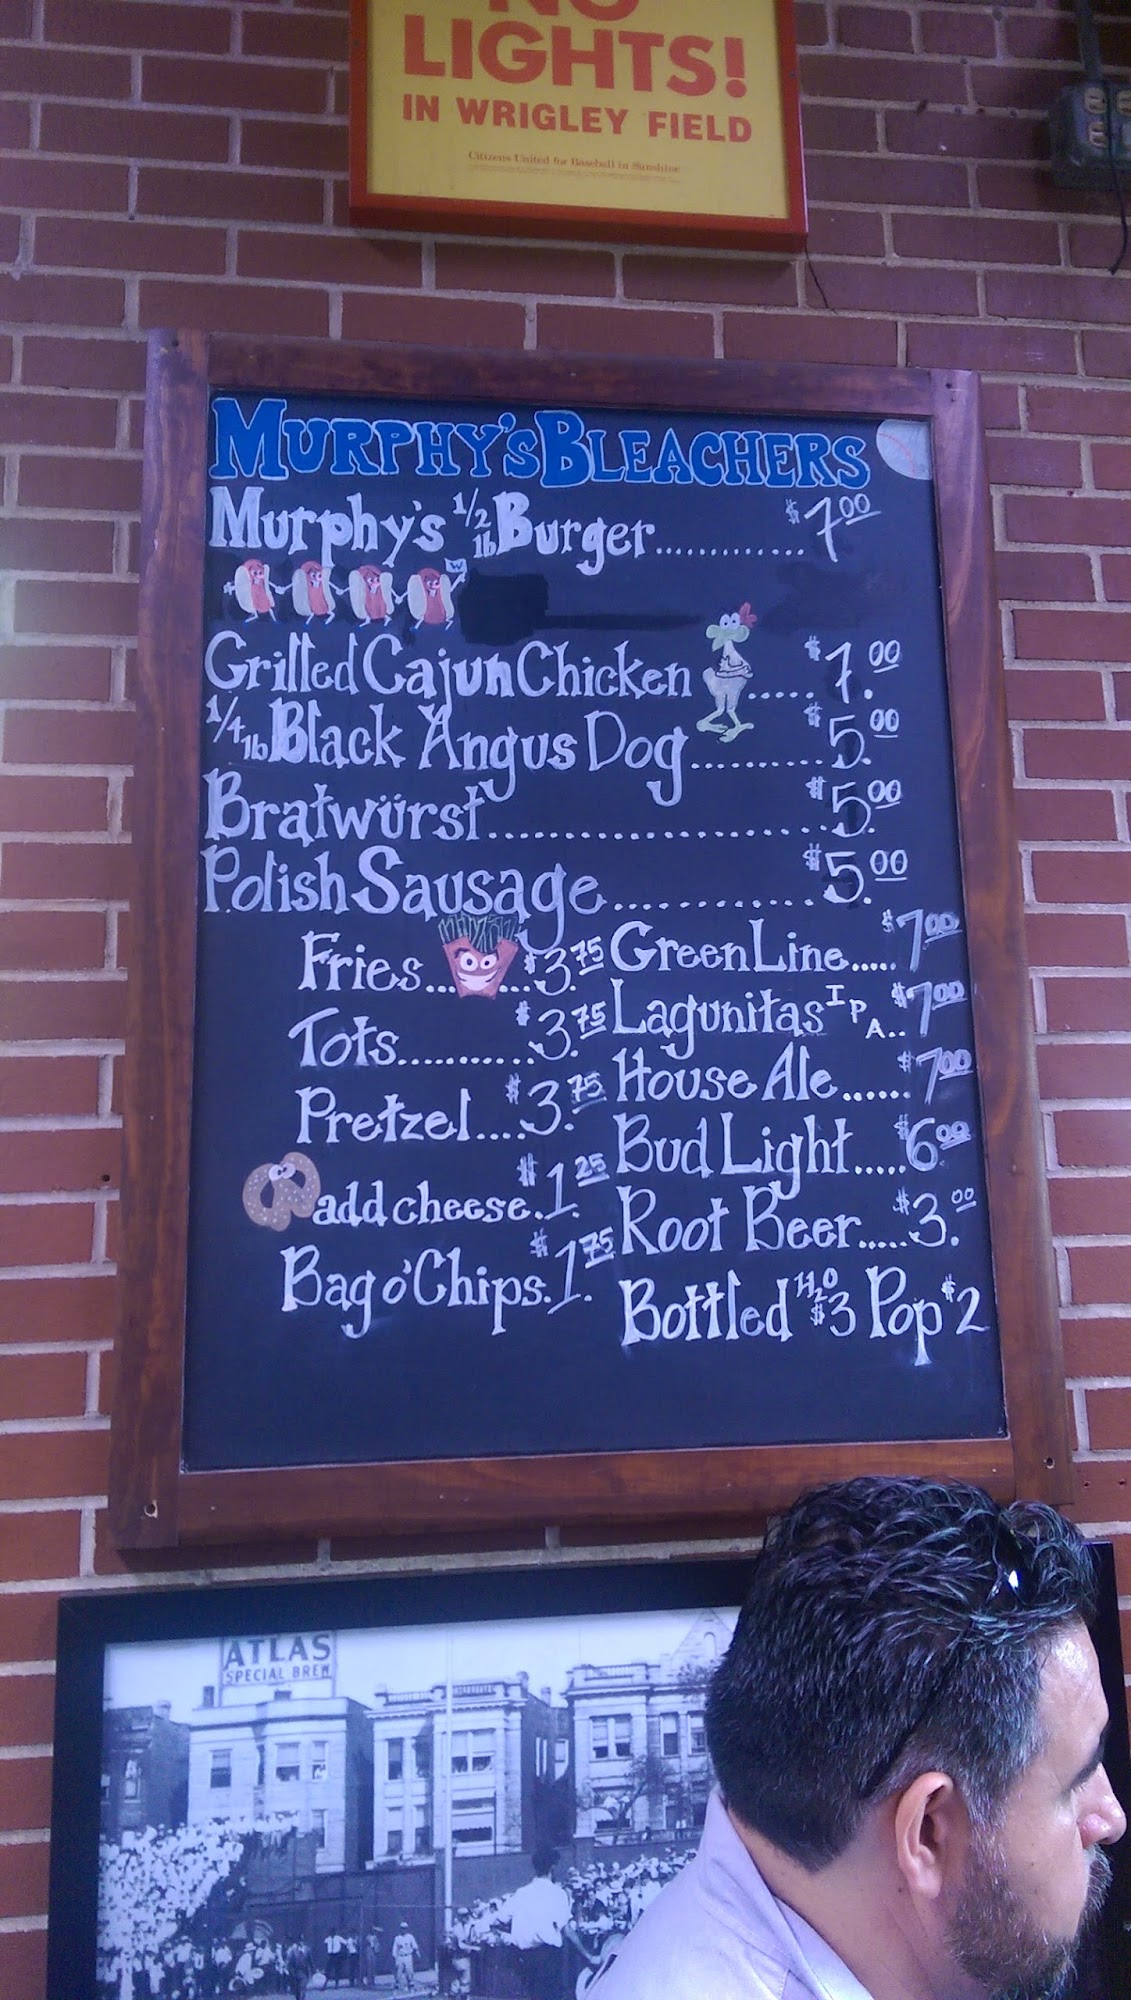 NO
LIGHTS!
IN WRIGLEY FIELD
Citizens United for Baseball in Sunshine
MURPHY'S BLEACHERS
Murphy's 1/2 lb Burger............. $7.00
W
Grilled Cajun Chicken..... $7.00
1/4 lb Black Angus Dog.......... $5.00
Bratwürst........................ $5.00
Polish Sausage............. $5.00
Fries...... $3.75
Tots........... $3.75
Pretzel.... $3.75
add cheese. $1.25
Bag o' Chips. $1.75
Green Line..... $7.00
Lagunitas IPA.. $7.00
House Ale...... $7.00
Bud Light..... $6.00
Root Beer..... $3.00
Bottled H2O $3 Pop $2
ATLAS
SPECIAL BREW